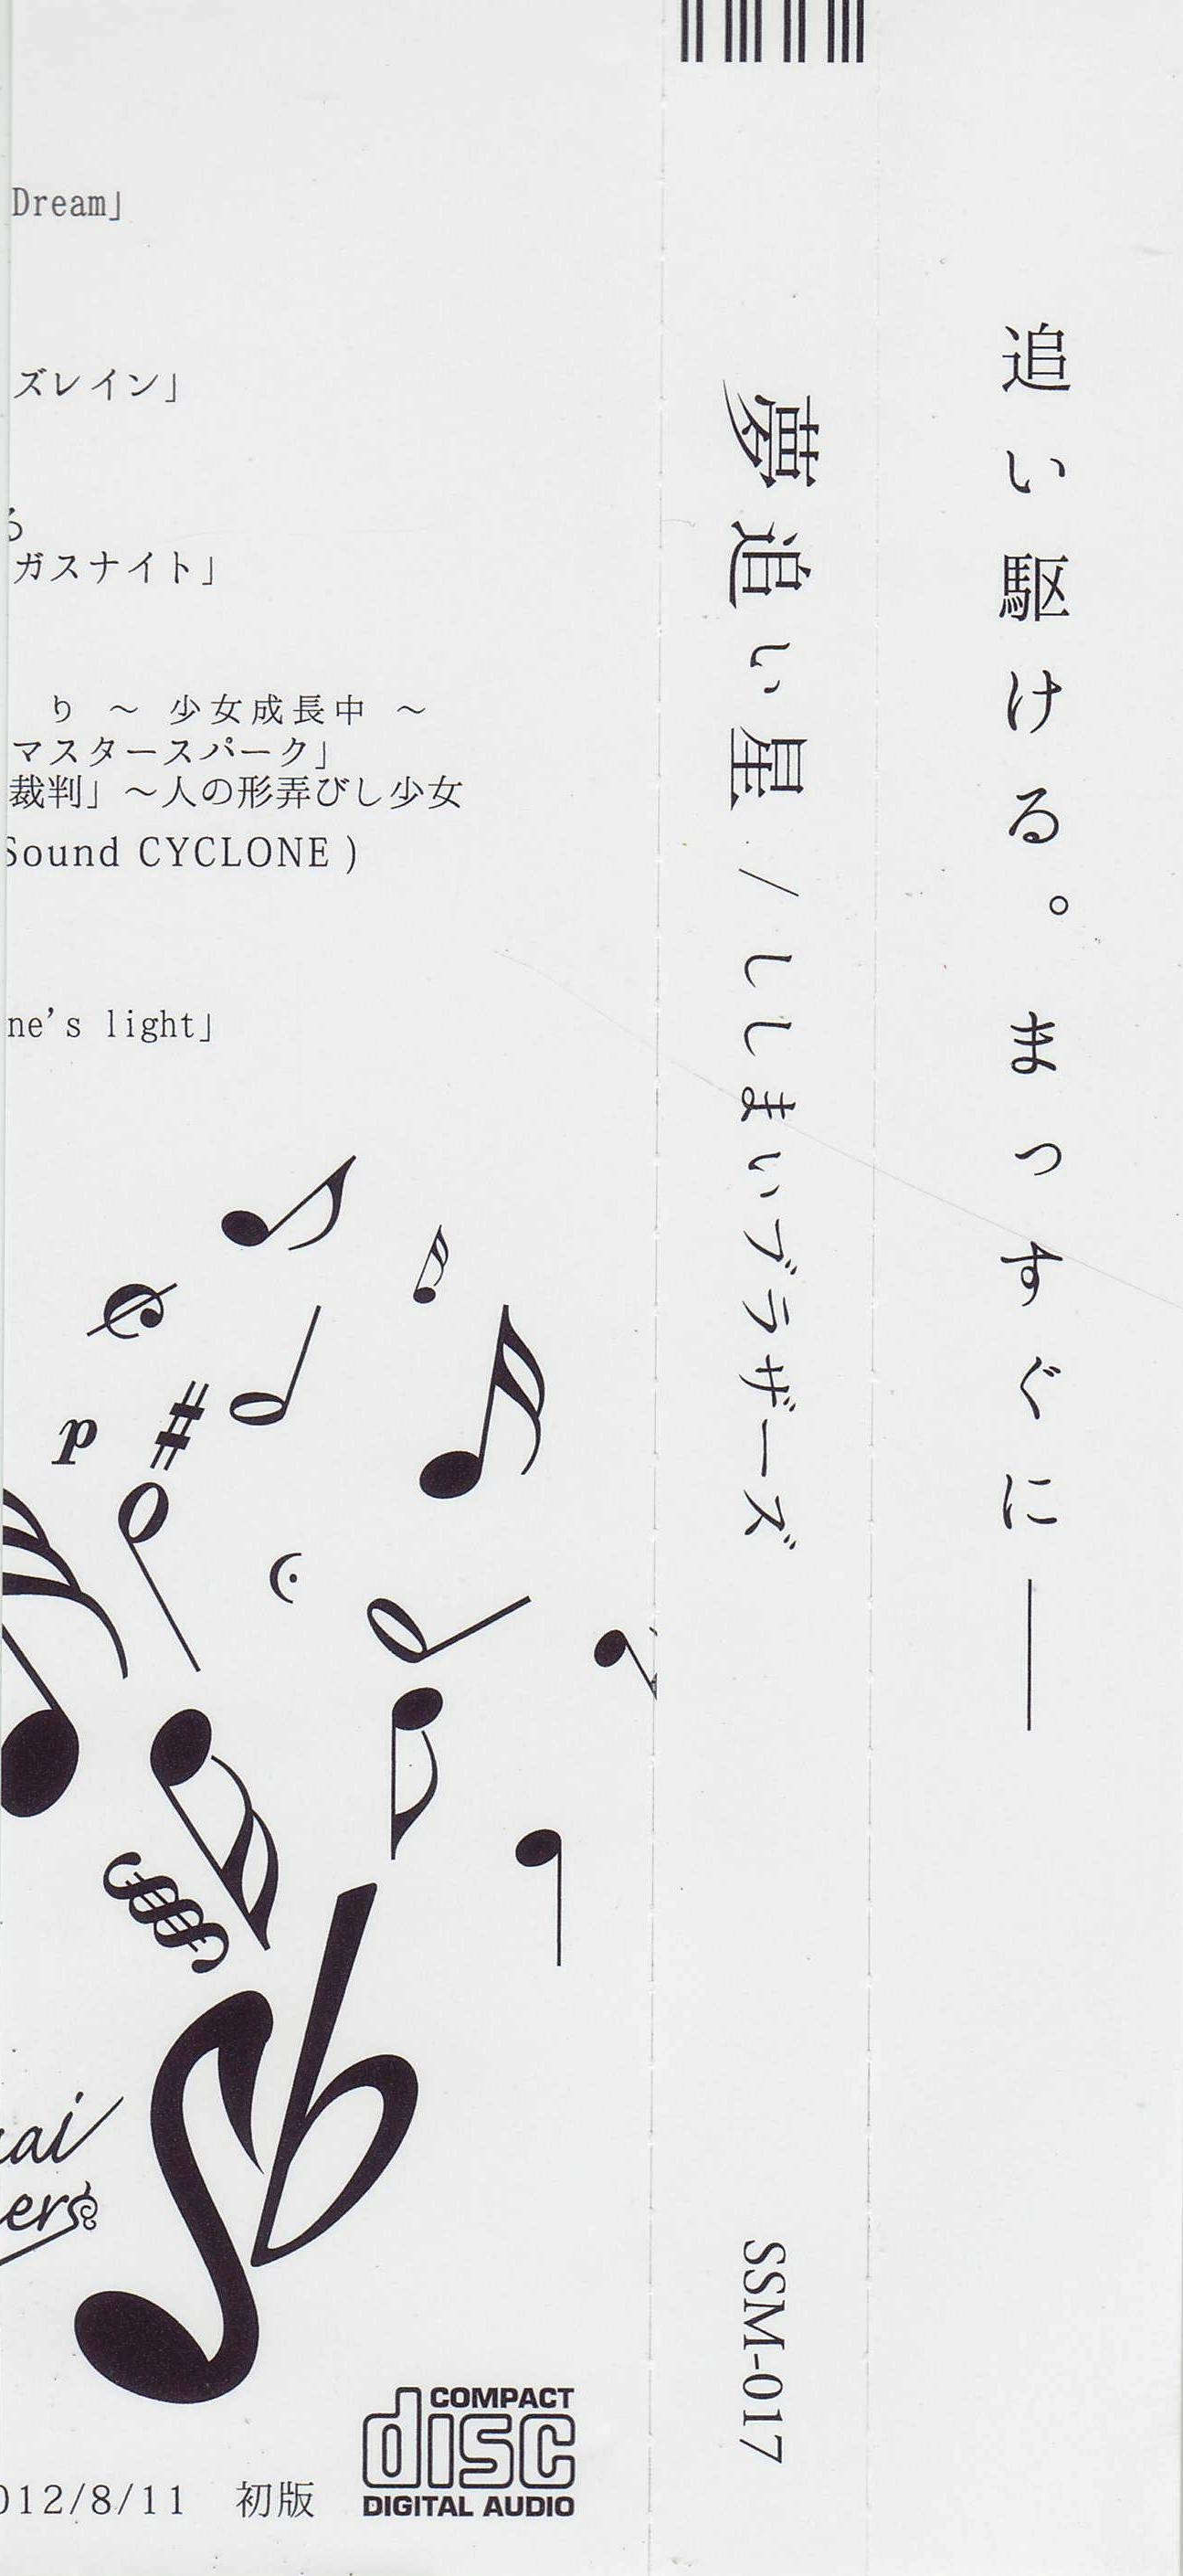 Dream」
ズレイン」
る
ガスナイト」
り ～ 少女成長中 ～
マスタースパーク」
裁判」～人の形弄びし少女
Sound CYCLONE )
ne’s light」
p
sb
ai
ers
012/8/11 初版
COMPACT
disc
DIGITAL AUDIO
夢追い星 / ししまいブラザーズ
SSM-017
追い駆ける。まっすぐに──